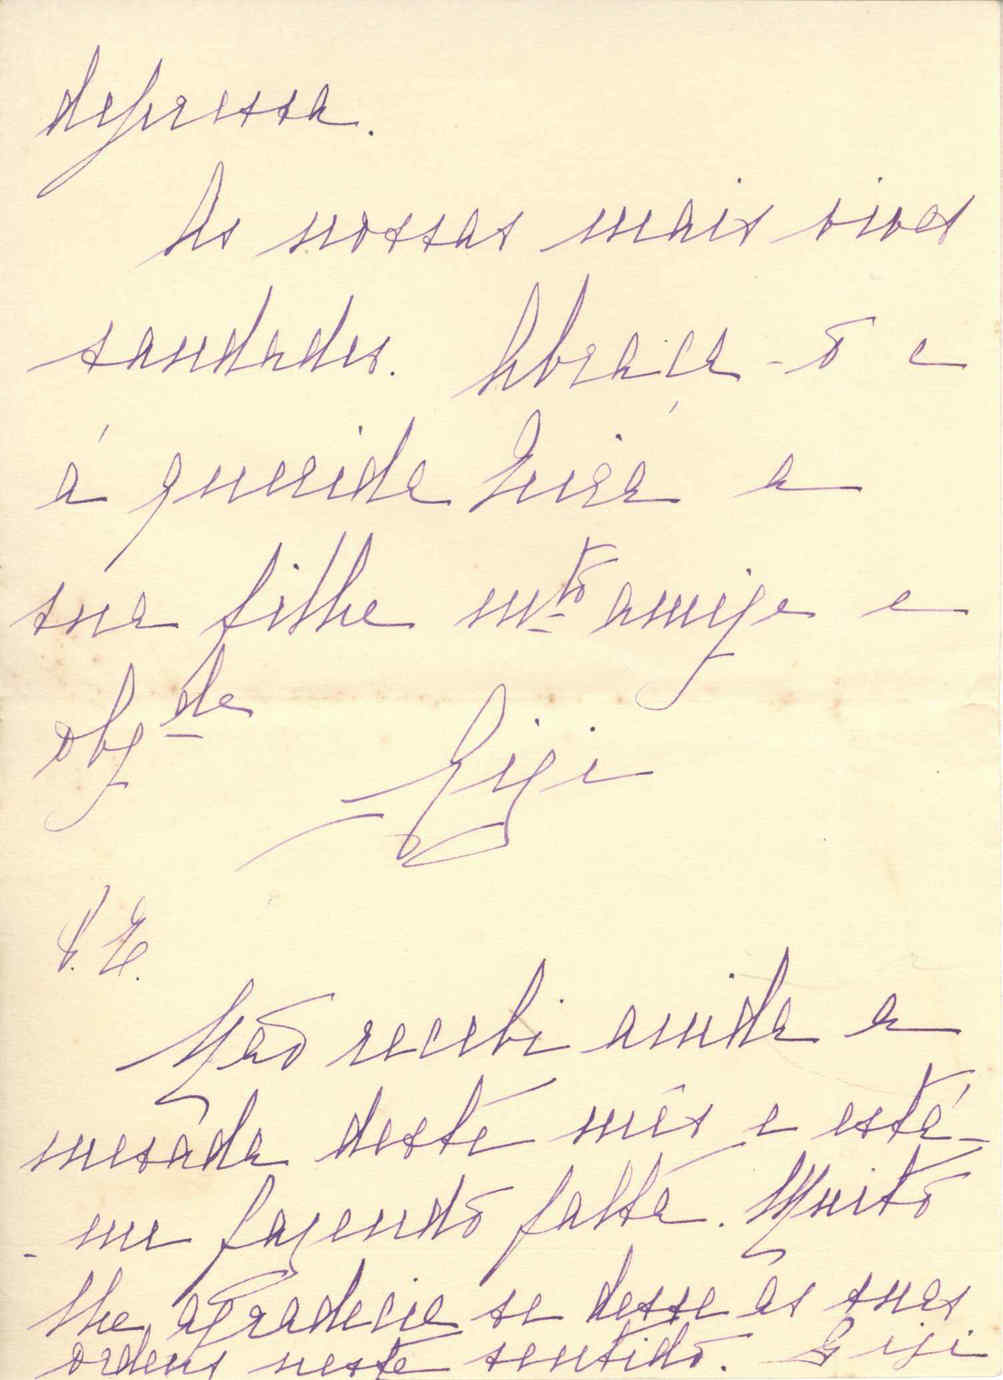 depressa.
As nossas mais vivas
saudades. Abraça-o e
á querida Zuzá a
sua filha mto amiga e
obgda
Gigi
P. E.
Não recebi ainda a
mesada deste mês e está-
-me fazendo falta. Muito
lhe agradecia se desse as suas
ordens neste sentido. Gigi